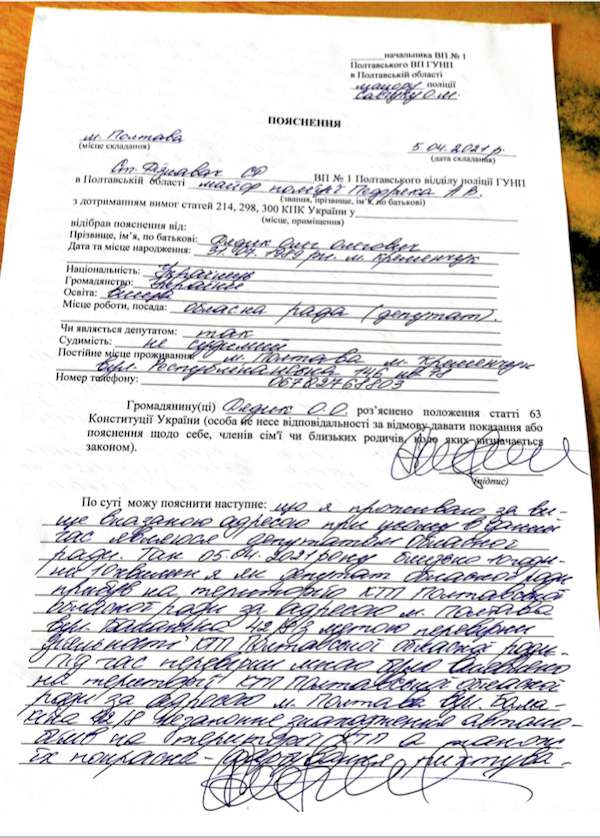 начальника ВП № 1
Полтавського ВП ГУНП
в Полтавській області
майору поліції
О.М.
ПОЯСНЕННЯ
м. Полтава 5.04.2021 р.
(місце складання) (дата складання)
Ст. Дізнавач СД ВП № 1 Полтавського відділу поліції ГУНП
в Полтавській області майор поліції А.В.
(звання, прізвище, ім'я, по батькові)
з дотриманням вимог статей 214, 298, 300 КПК України у
(місце, приміщення)
відібрав пояснення від:
Прізвище, ім'я, по батькові: Дядик Олег Олегович
Дата та місце народження: м. Кременчук
Національність: Українець
Громадянство: України
Освіта: вища
Місце роботи, посада: обласна рада (депутат).
Чи являється депутатом: так
Судимість: не судимий
Постійне місце проживання: м. Полтава м. Кременчук
вул. Республіканська 146 кв. 78
Номер телефону:
Громадянину(ці) Дядик О.О. роз'яснено положення статті 63
Конституції України (особа не несе відповідальності за відмову давати показання або
пояснення щодо себе, членів сім'ї чи близьких родичів, коло яких визначається
законом).
(підпис)
По суті можу пояснити наступне: що я проживаю за ви-
ще вказаною адресою при цьому в даний
час являюся депутатом обласної
ради. Так 05.04.2021 року близько 10 годи-
ни 10 хвилин я як депутат обласної ради
прибув на територію КТП Полтавської
обласної ради за адресою м. Полтава
вул. Балакіна з метою перевірки
діяльності КТП Полтавської обласної ради.
Під час перевірки мною було виявлено
на території КТП Полтавської обласної
ради за адресою м. Полтава вул. Бала-
кіна незаконне знаходження автомо-
білів на території КТП а також
їх покраска-